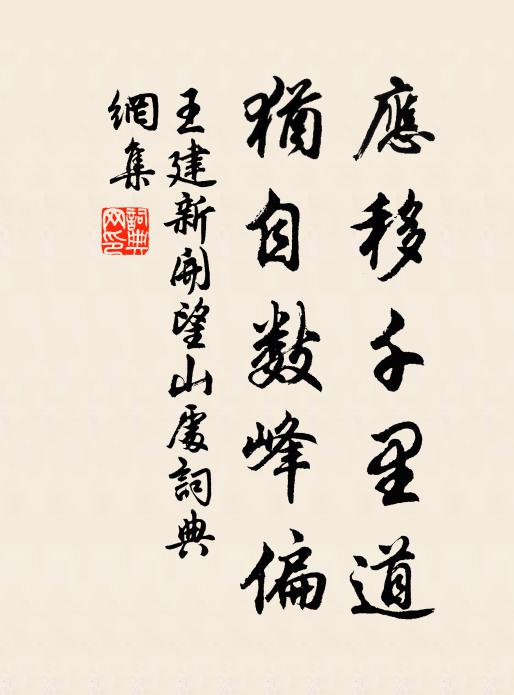 應移千里道
猶自數峰偏
王建新開望山處詞典
網集
詞典網印